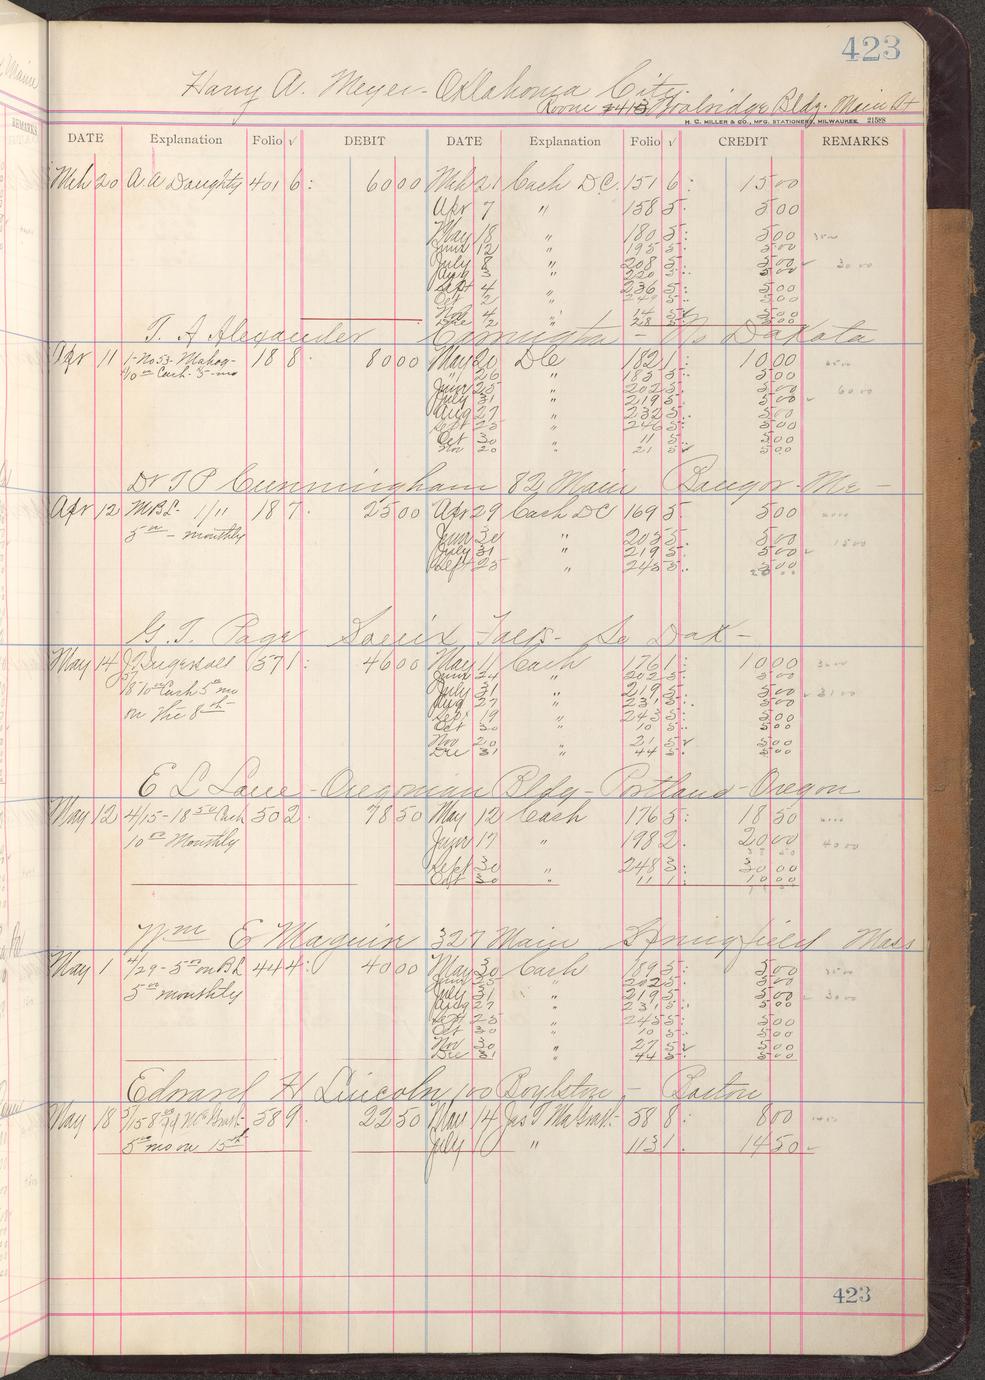 423
Harry A. Meyer - Oklahoma City.
Room 415 Bldg. Main St
H. C. MILLER & CO., MFG. STATIONERS, MILWAUKEE. 21588
DATE Explanation Folio √ DEBIT DATE Explanation Folio √ CREDIT REMARKS
Mch 20 A. A Doughty 401 6: 60 00 Mch 21 Cash D.C. 151 6: 15 00
Apr 7 " 158 5. 5 00
May 18 " 180 5: 5 00
June 12 " 195 5: 5 00
July 8 " 208 5: 5 00 30 00
Aug 3 " 220 5: 5 00
Sept 4 " 236 5: 5 00
Oct 2 " 249 5: 5 00
Nov 4 " 14 5 5 00
Dec 2 " 28 5 5 00
T. A Alexander - No Dakota
Apr 11 1-No 53- Mahog- 18 8. 80 00 May 20 DC 182 1: 10 00
10 00 Cash. 5- mo " 26 " 185 5: 5 00
June 25 " 202 5: 5 00 60 00
July 31 " 219 5: 5 00
Aug 27 " 232 5: 5 00
Sept 25 " 246 5: 5 00
Oct 30 " 11 5. 5 00
Nov 20 " 21 5 5 00
Dr T P Cunningham 82 Main Bangor - Me -
Apr 12 MBL- 1/11 18 7. 25 00 Apr 29 Cash DC 169 5. 5 00
5 00 - monthly June 30 " 203 5: 5 00 15 00
July 31 " 219 5: 5 00
Sept 25 " 245 5: 5 00
G. T. Page Soeix Falls - So Dak -
May 14 J. Ingersoll 37 1: 46 00 May 11 Cash 176 1: 10 00
June 24 " 202 5: 5 00
18 10 00 Cash 5 00 mo July 31 " 219 5: 5 00 31 00
Aug 27 " 231 5: 5 00
on the 8th - Sept 19 " 243 5: 5 00
Oct 30 " 10 5: 5 00
Nov 20 " 21 5 5 00
Dec 31 " 44 5. 5 00
E L Lane - Oregonian Bldg - Portland - Oregon
May 12 4/15 - 18 50 Cash 50 2. 78 50 May 12 Cash 176 5: 18 50
10 00 Monthly June 17 " 198 2. 20 00 40 00
Sept 30 " 248 3: 30 00
Oct 30 " 11 1: 10 00
Wm E Maguire 327 Main Springfield Mass
May 1 4/29 - 5 00 on BL 44 4: 40 00 May 30 Cash 189 5: 5 00
5 00 monthly June 25 202 5: 5 00
July 31 " 219 5: 5 00 30 00
Aug 27 " 231 5: 5 00
Sept 25 245 5: 5 00
Oct 30 " 10 5: 5 00
Nov 30 " 27 5 5 00
Dec 31 " 44 5. 5 00
Edward H Lincoln 100 Boylston - Boston
May 18 58 9. 22 50 May 14 58 8. 8 00
5 00 mo on 15th July " 113 1. 14 50
423